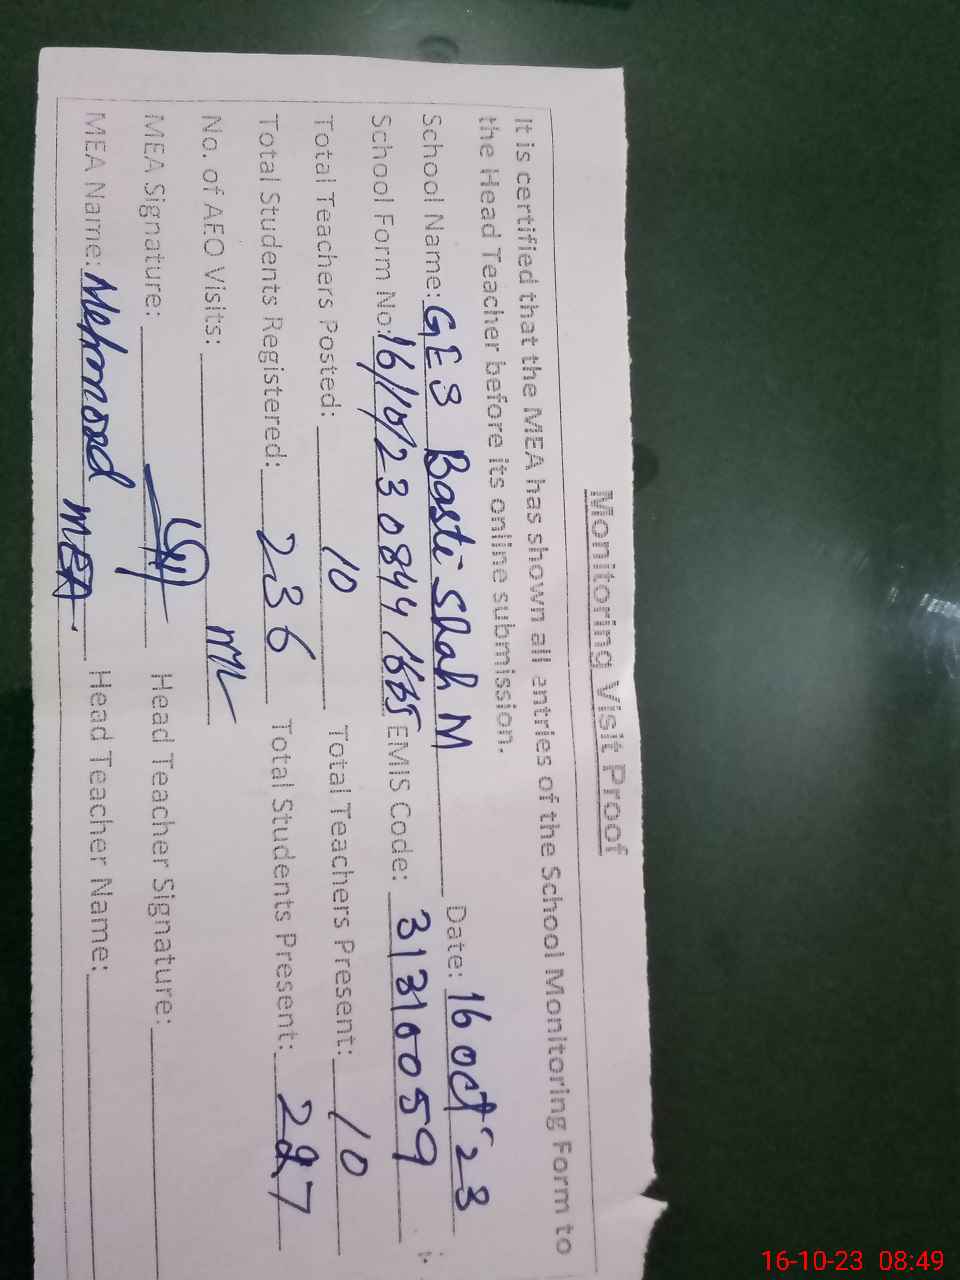 Monitoring Visit Proof
It is certified that the MEA has shown all entries of the School Monitoring Form to
the Head Teacher before its online submission.
School Name: GES Basti Shah M Date: 16 Oct 23
School Form No: 16/10/23 0844 / EMIS Code: 31310059
Total Teachers Posted: 10 Total Teachers Present: 10
Total Students Registered: 236 Total Students Present: 227
No. of AEO Visits:
MEA Signature: Head Teacher Signature:
MEA Name: MEA. Head Teacher Name:
16-10-23 08:49